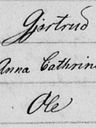 Gjertrud
Anna Cathrine
Ole